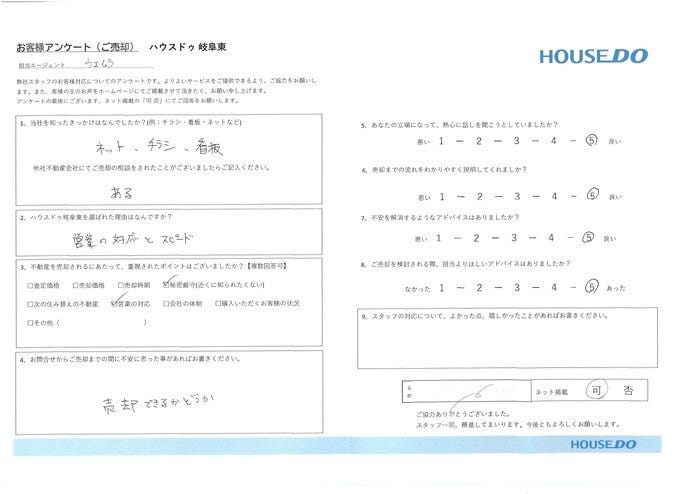 お客様アンケート（ご売却）　ハウスドゥ 岐阜東
担当エージェント　ウエムラ
弊社スタッフのお客様対応についてのアンケートです。よりよいサービスをご提供できるよう、ご協力をお願いし
ます。また、客様の生のお声をホームページにてご掲載させて頂きたく、お願い申し上げます。
アンケートの最後にございます、ネット掲載の「可 否」にてご回答をお願いします。
1、当社を知ったきっかけはなんでしたか？(例：チラシ・看板・ネットなど)
ネット、チラシ、看板
他社不動産会社にてご売却の相談をされたことがございましたらご記入ください。
ある
2、ハウスドゥ岐阜東を選ばれた理由はなんですか？
営業の対応とスピード
3、不動産を売却されるにあたって、重視されたポイントはございましたか？【複数回答可】
□査定価格　□売却価格　□売却時期　☑秘密厳守(近くに知られたくない)
□次の住み替えの不動産　☑営業の対応　□会社の体制　□購入いただくお客様の状況
□その他（　　　　　　　　）
4、お問合せからご売却までの間に不安に思った事があればお書きください。
売却できるかどうか
HOUSEDO
5、あなたの立場になって、熱心に話しを聞こうとしていましたか？
悪い　1 － 2 － 3 － 4 － ⑤　良い
6、売却までの流れをわかりやすく説明してくれましか？
悪い　1 － 2 － 3 － 4 － ⑤　良い
7、不安を解消するようなアドバイスはありましたか？
悪い　1 － 2 － 3 － 4 － ⑤　良い
8、ご売却を検討される際、担当よりほしいアドバイスはありましたか？
なかった　1 － 2 － 3 － 4 － ⑤　あった
9、スタッフの対応について、よかった点、嬉しかったことがあればお書きください。
名前
ネット掲載　可　否
ご協力ありがとうございました。
スタッフ一同、精進してまいります。今後ともよろしくお願いします。
HOUSEDO